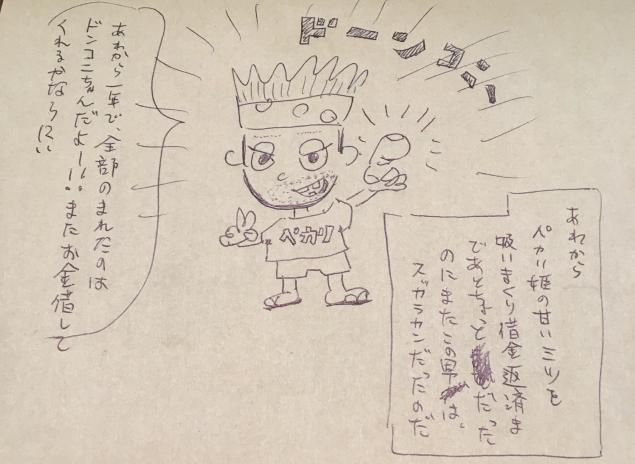 ドーンコン
あれから
ペカリ姫の甘いミツを
吸いまくり借金返済ま
であとちょっとだった
のにまたこの男は、
スカラカンだったのだ
ペカリ
あれから一年で、全部のまれたのは
ドンコニちゃんだよー!!またお金借して
くれるかなら